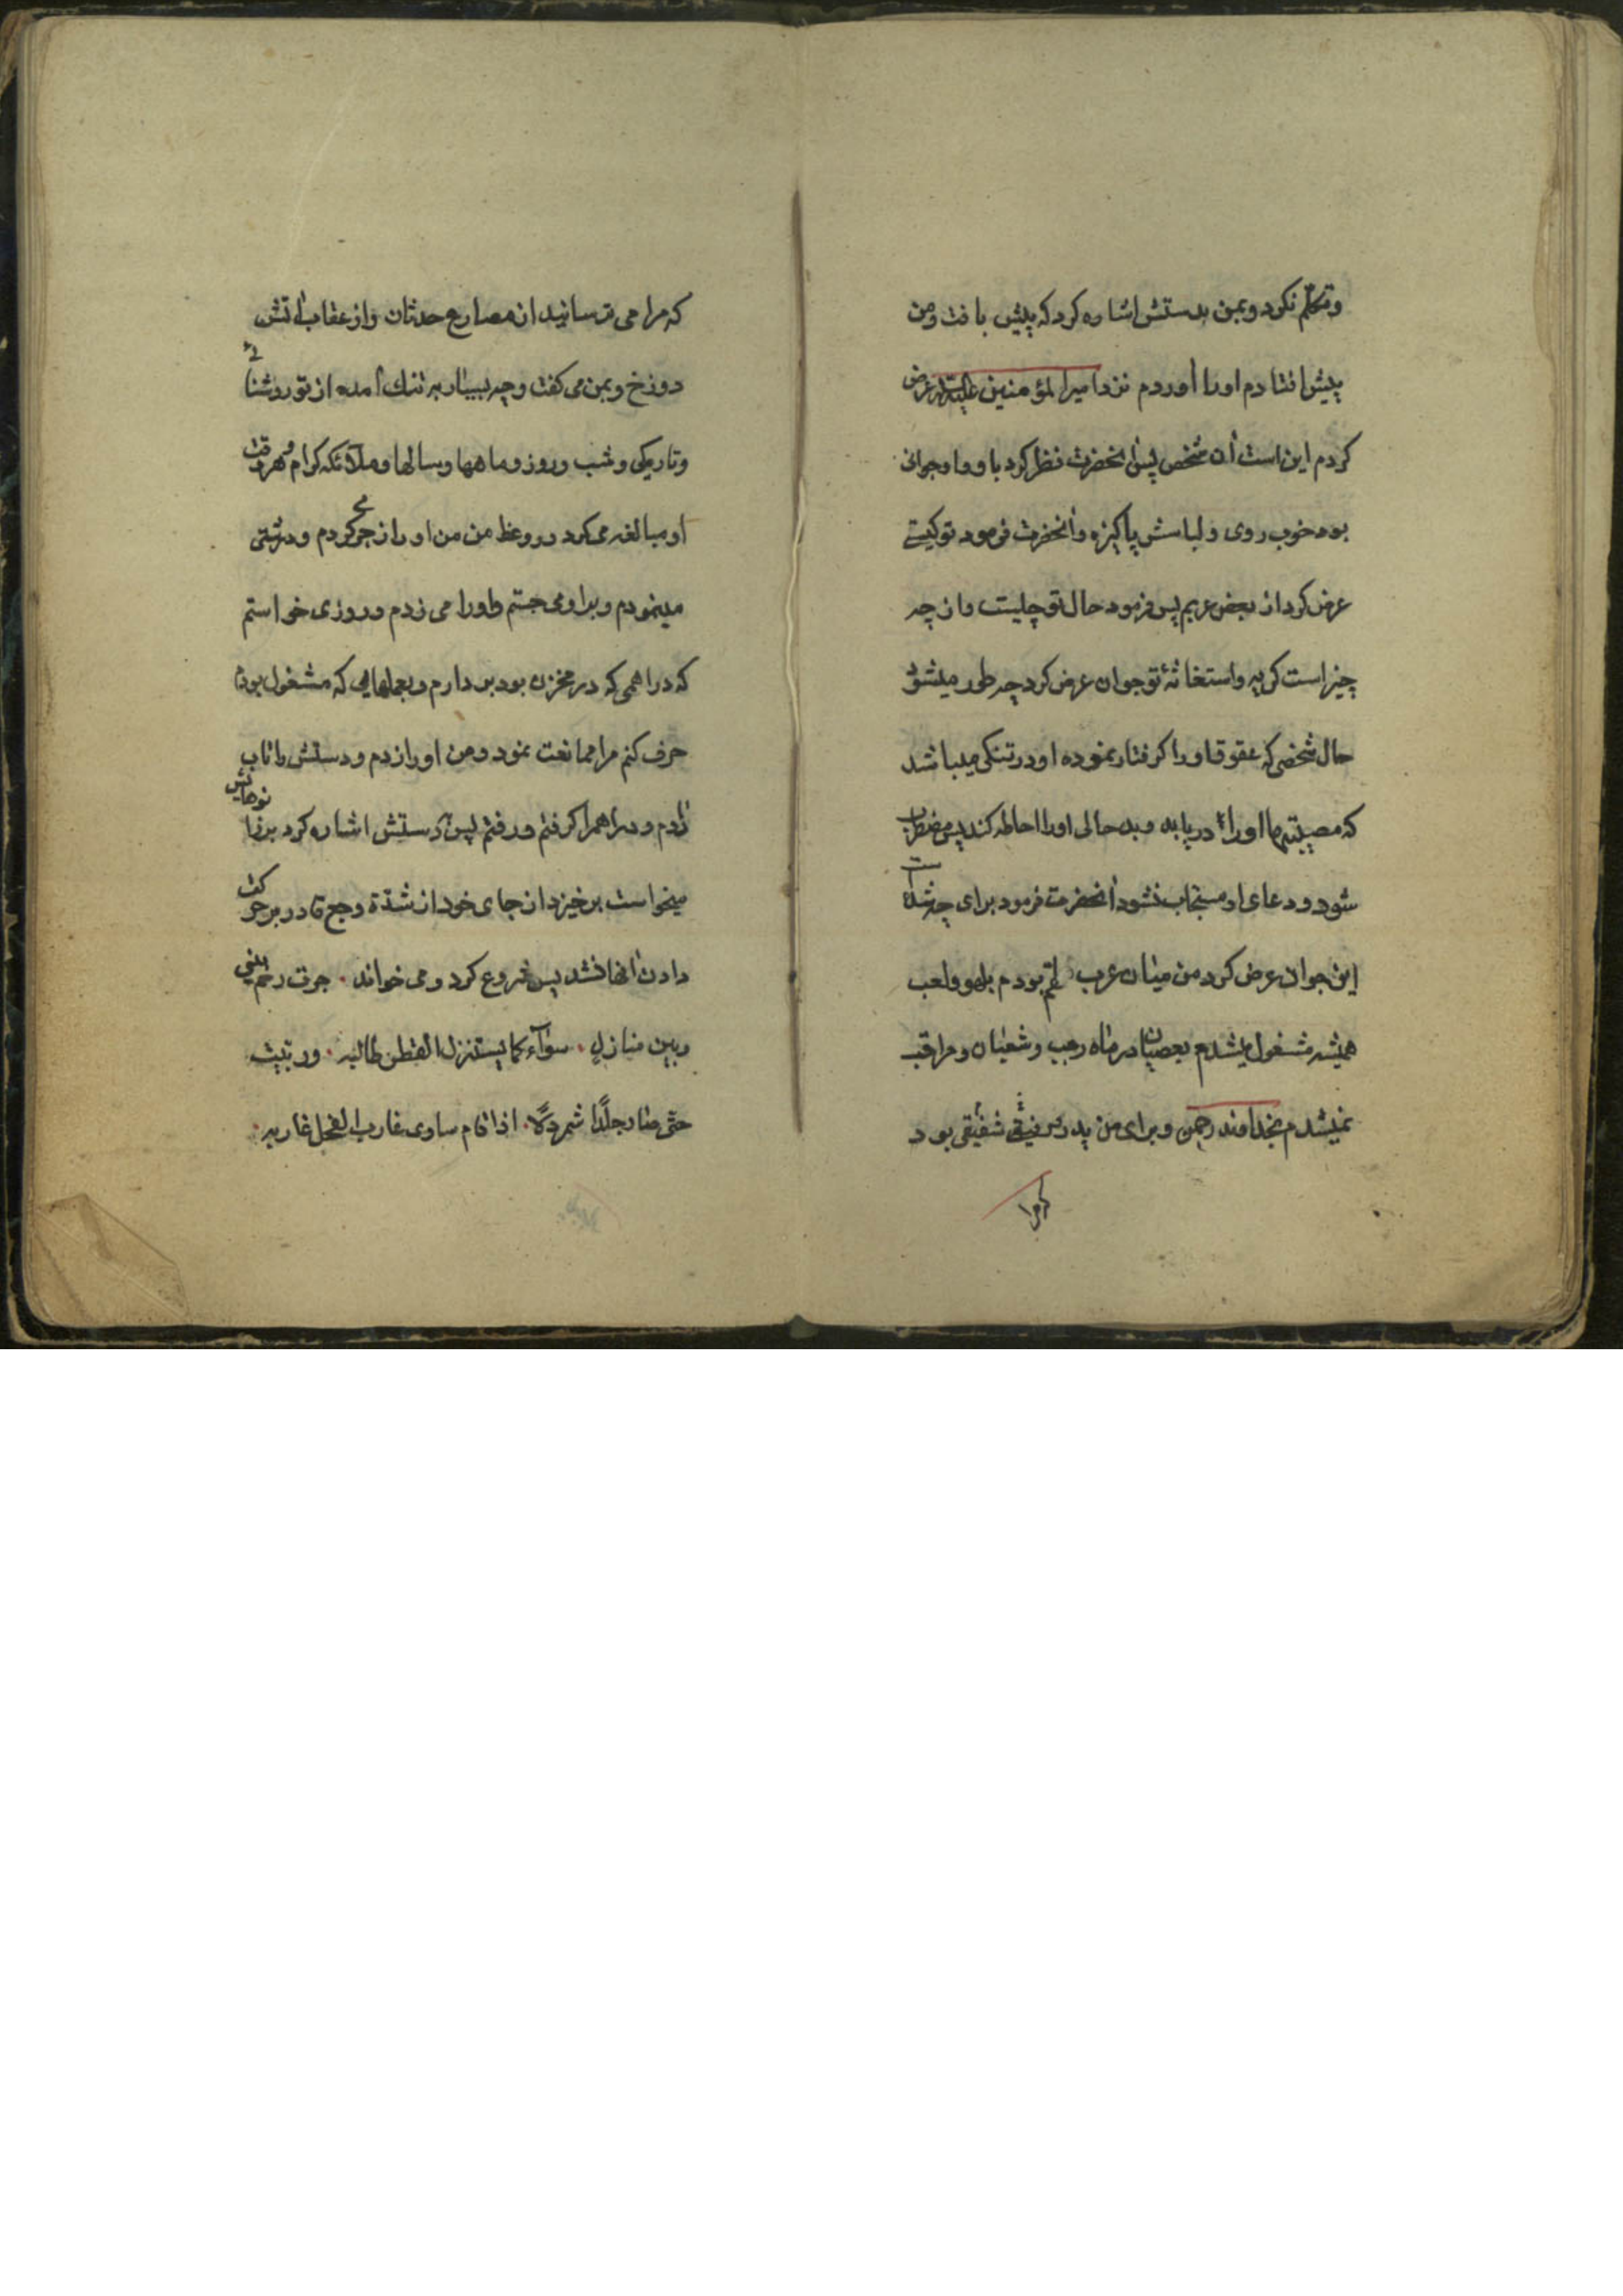 وتکلم نکرد و بمن بدستش اشاره کرد که پیش بافت و من
پیش افتادم او را آوردم نزد امیرالمؤمنین علیه السلام عرض
کردم این است آن شخص پس آنحضرت نظر کرد باو و او جوانی
بود خوب روی و لباسش پاکیزه و آنحضرت فرمود تو کیستی
عرض کرد از بعض عربم پس فرمود حال تو چیست و از چه
چیز است کریه و استغاثهٔ تو جوان عرض کرد چه طور میشود
حال شخصی که عقوق او را کرفتار نموده او در تنکی میباشد
که مصیبتها او را دریابد و بد حالی او را احاطه کند پس مضطرب
شود و دعای او مستجاب نشود آنحضرت فرمود برای چه شده است
این جوان عرض کرد من میان عرب بودم بلهو و لعب
همیشه مشغول میشدم بعصیان در ماه رجب و شعبان و مراقب
نمیشدم بخداوند رحمن و برای من پدر رفیقی شفیقی بود
که مرا
که مرا می ترسانید از مصارع حدثان و از عقاب آتش
دوزخ و بمن می کفت و چه بسیار به تنك آمده از تو روشنائی
و تاریکی و شب و روز و ماهها و سالها و ملائکه کرام و هر وقت
او مبالغه می کرد در وعظ من من او را زجر می کردم و درشتی
مینمودم و براو می جستم و او را می زدم و روزی خواستم
که دراهمی که در مخزن بود بر دارم و بعملهایی که مشغول بودم
صرف کنم مرا ممانعت نمود و من او را زدم و دستش را تاب
دادم و دراهم را کرفتم و رفتم پس دستش اشاره کرد بزانوهایش
میخواست برخیزد از جای خود از شدة وجع قادر بر حرکت
دادن آنها نشد پس شروع کرد و می خواند ٠ جرت رحم بینی
وبین منازل ٠ سواء کما یستنزل القطر طالبه ٠ وربیت
حتی صار جلدًا شمردلًا ٠ اذا قام ساوی غارب الفحل غاربه ٠